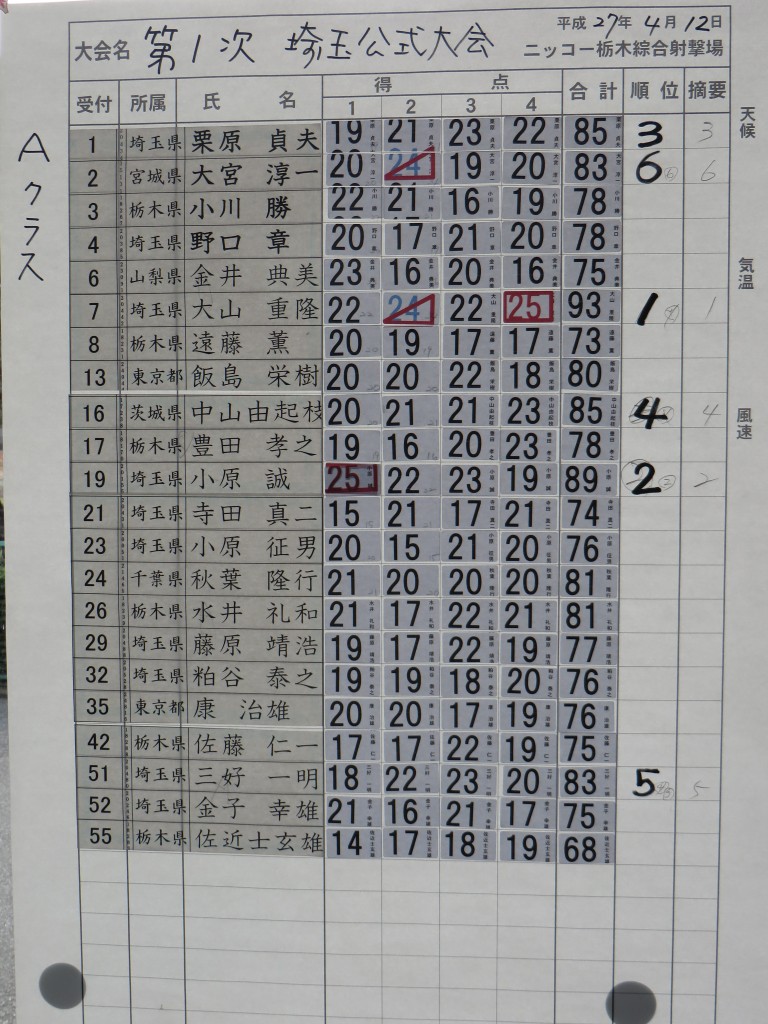 平成27年 4月 12日
大会名 第1次 埼玉公式大会 ニッコー栃木綜合射撃場
受付 所属 氏 名 得 点 合計 順位 摘要
1 2 3 4
天候
気温
風速
Aクラス
1 埼玉県 栗原 貞夫 19 21 23 22 85 3 3
2 宮城県 大宮 淳一 20 24 19 20 83 6 6
3 栃木県 小川 勝 22 21 16 19 78
4 埼玉県 野口 章 20 17 21 20 78
6 山梨県 金井 典美 23 16 20 16 75
7 埼玉県 大山 重隆 22 24 22 25 93 1 1
8 栃木県 遠藤 薫 20 19 17 17 73
13 東京都 飯島 栄樹 20 20 22 18 80
16 茨城県 中山由起枝 20 21 21 23 85 4 4
17 栃木県 豊田 孝之 19 16 20 23 78
19 埼玉県 小原 誠 25 22 23 19 89 2 2
21 埼玉県 寺田 真二 15 21 17 21 74
23 埼玉県 小原 征男 20 15 21 20 76
24 千葉県 秋葉 隆行 21 20 20 20 81
26 栃木県 水井 礼和 21 17 22 21 81
29 埼玉県 藤原 靖浩 19 17 22 19 77
32 埼玉県 粕谷 泰之 19 19 18 20 76
35 東京都 康 治雄 20 20 17 19 76
42 栃木県 佐藤 仁一 17 17 22 19 75
51 埼玉県 三好 一明 18 22 23 20 83 5 5
52 埼玉県 金子 幸雄 21 16 21 17 75
55 栃木県 佐近士玄雄 14 17 18 19 68